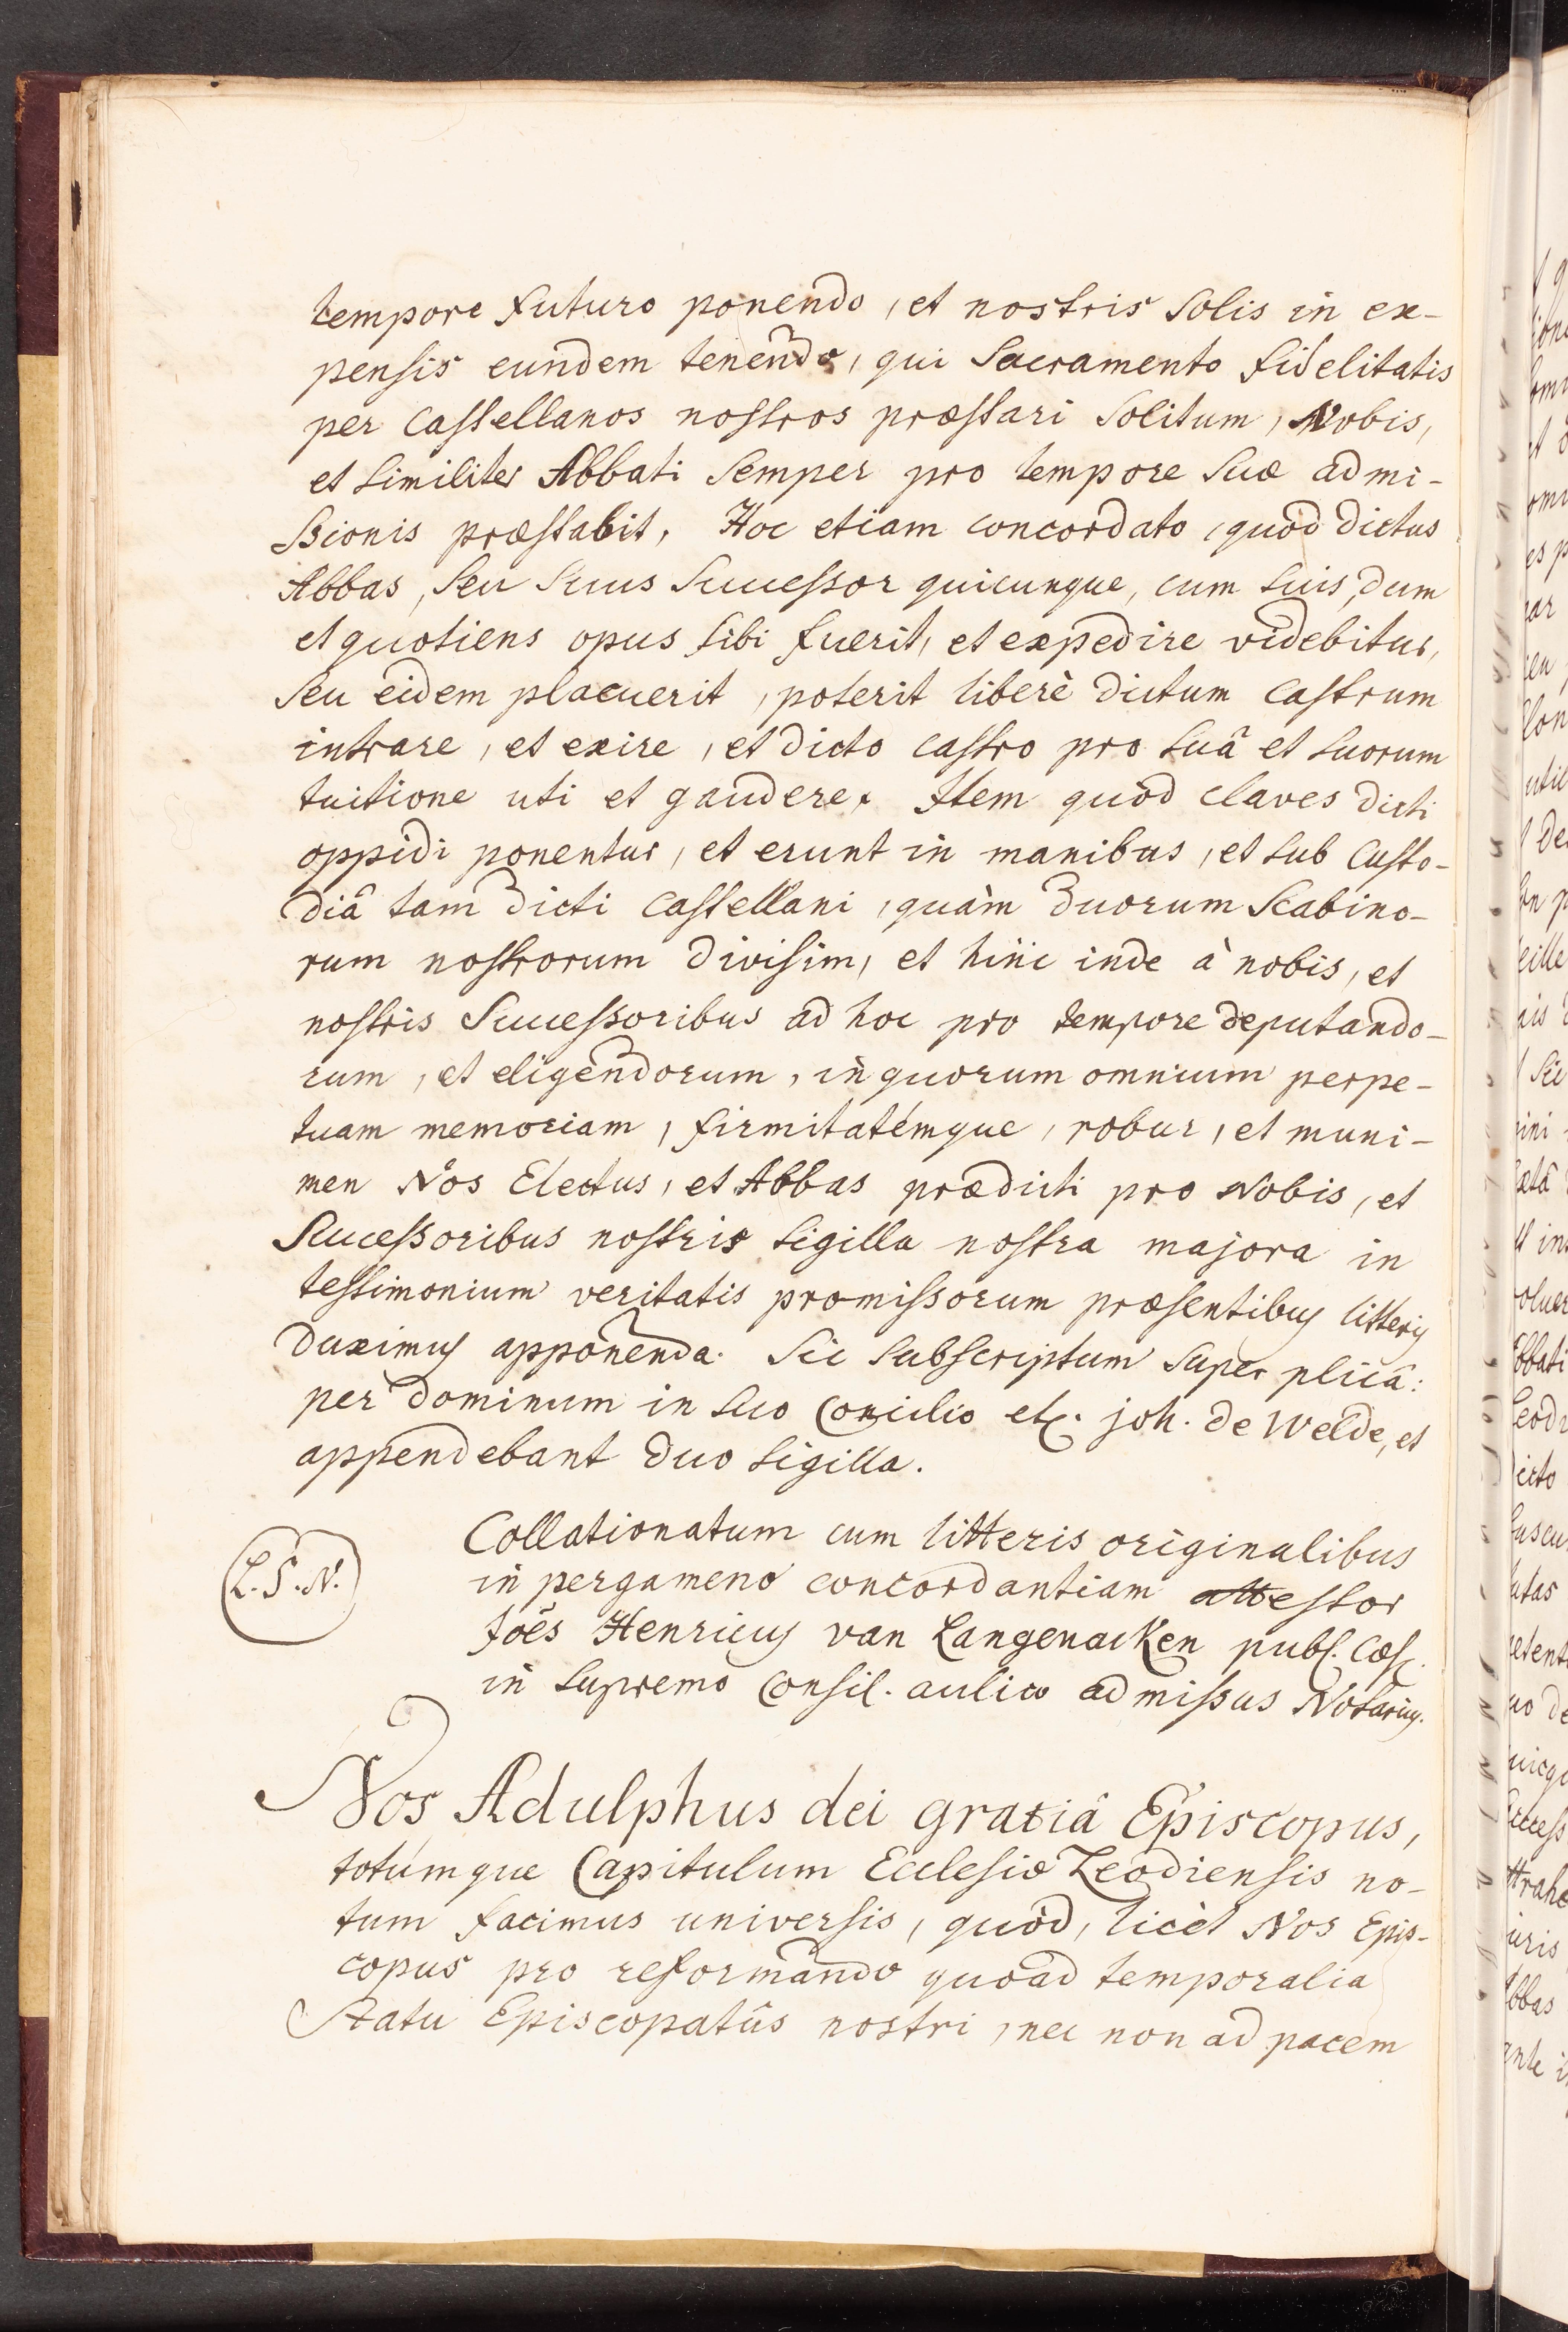 tempore futuro ponendo, et nostris solis in ex-
pensis eundem tenendo, qui Sacramento fidelitatis
per castellanos nostros præstari solitum, Nobis,
et similiter Abbati semper pro tempore suæ admi-
ssionis præstabit, Hoc etiam concordato, quod dictus
Abbas, seu suus Successor quicunque, cum suis, dum
et quotiens opus sibi fuerit, et expedire videbitur,
seu eidem placuerit, poterit liberè dictum castrum
intrare, et exire, et dicto castro pro suâ et suorum
tuitione uti et gaudere. Item quòd claves dicti
oppidi ponentur, et erunt in manibus, et sub custo-
diâ tam dicti castellani, quàm duorum Scabino-
rum nostrorum divisim, et hinc inde à nobis, et
nostris Successoribus ad hoc pro tempore deputando-
rum, et eligendorum, in quorum omnium perpe-
tuam memoriam, firmitatémque, robur, et muni-
men Nos Electus, et Abbas prædicti pro Nobis, et
Successoribus nostris sigilla nostra majora in
testimonium veritatis promissorum præsentibus litteris
duximus apponenda. Sic subscriptum super plicâ:
per dominum in suo Concilio etc. joh. de Welde, et
appendebant duo sigilla.
Collationatum cum litteris originalibus
L.S.N.
in pergameno concordantiam attestor
Joēs Henricus van Langenacken publ. cæs.
in supremo Consil. aulico admissus Notarius.
Nos Adulphus dei gratiâ Episcopus,
totúmque Capitulum Ecclesiæ Leodiensis no-
tum facimus universis, quòd, licèt Nos Epis-
copus pro reformando quoad temporalia
Statu Episcopatûs nostri, nec non ad pacem